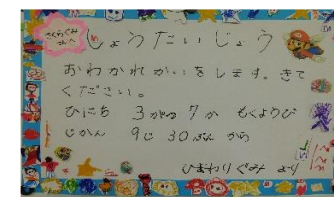 さくらぐみ
さんへ
しょうたいじょう
おわかれかいをします。きて
ください。
ひにち 3がつ 7か もくようび
じかん 9じ 30ぷん から
ひまわりぐみ より